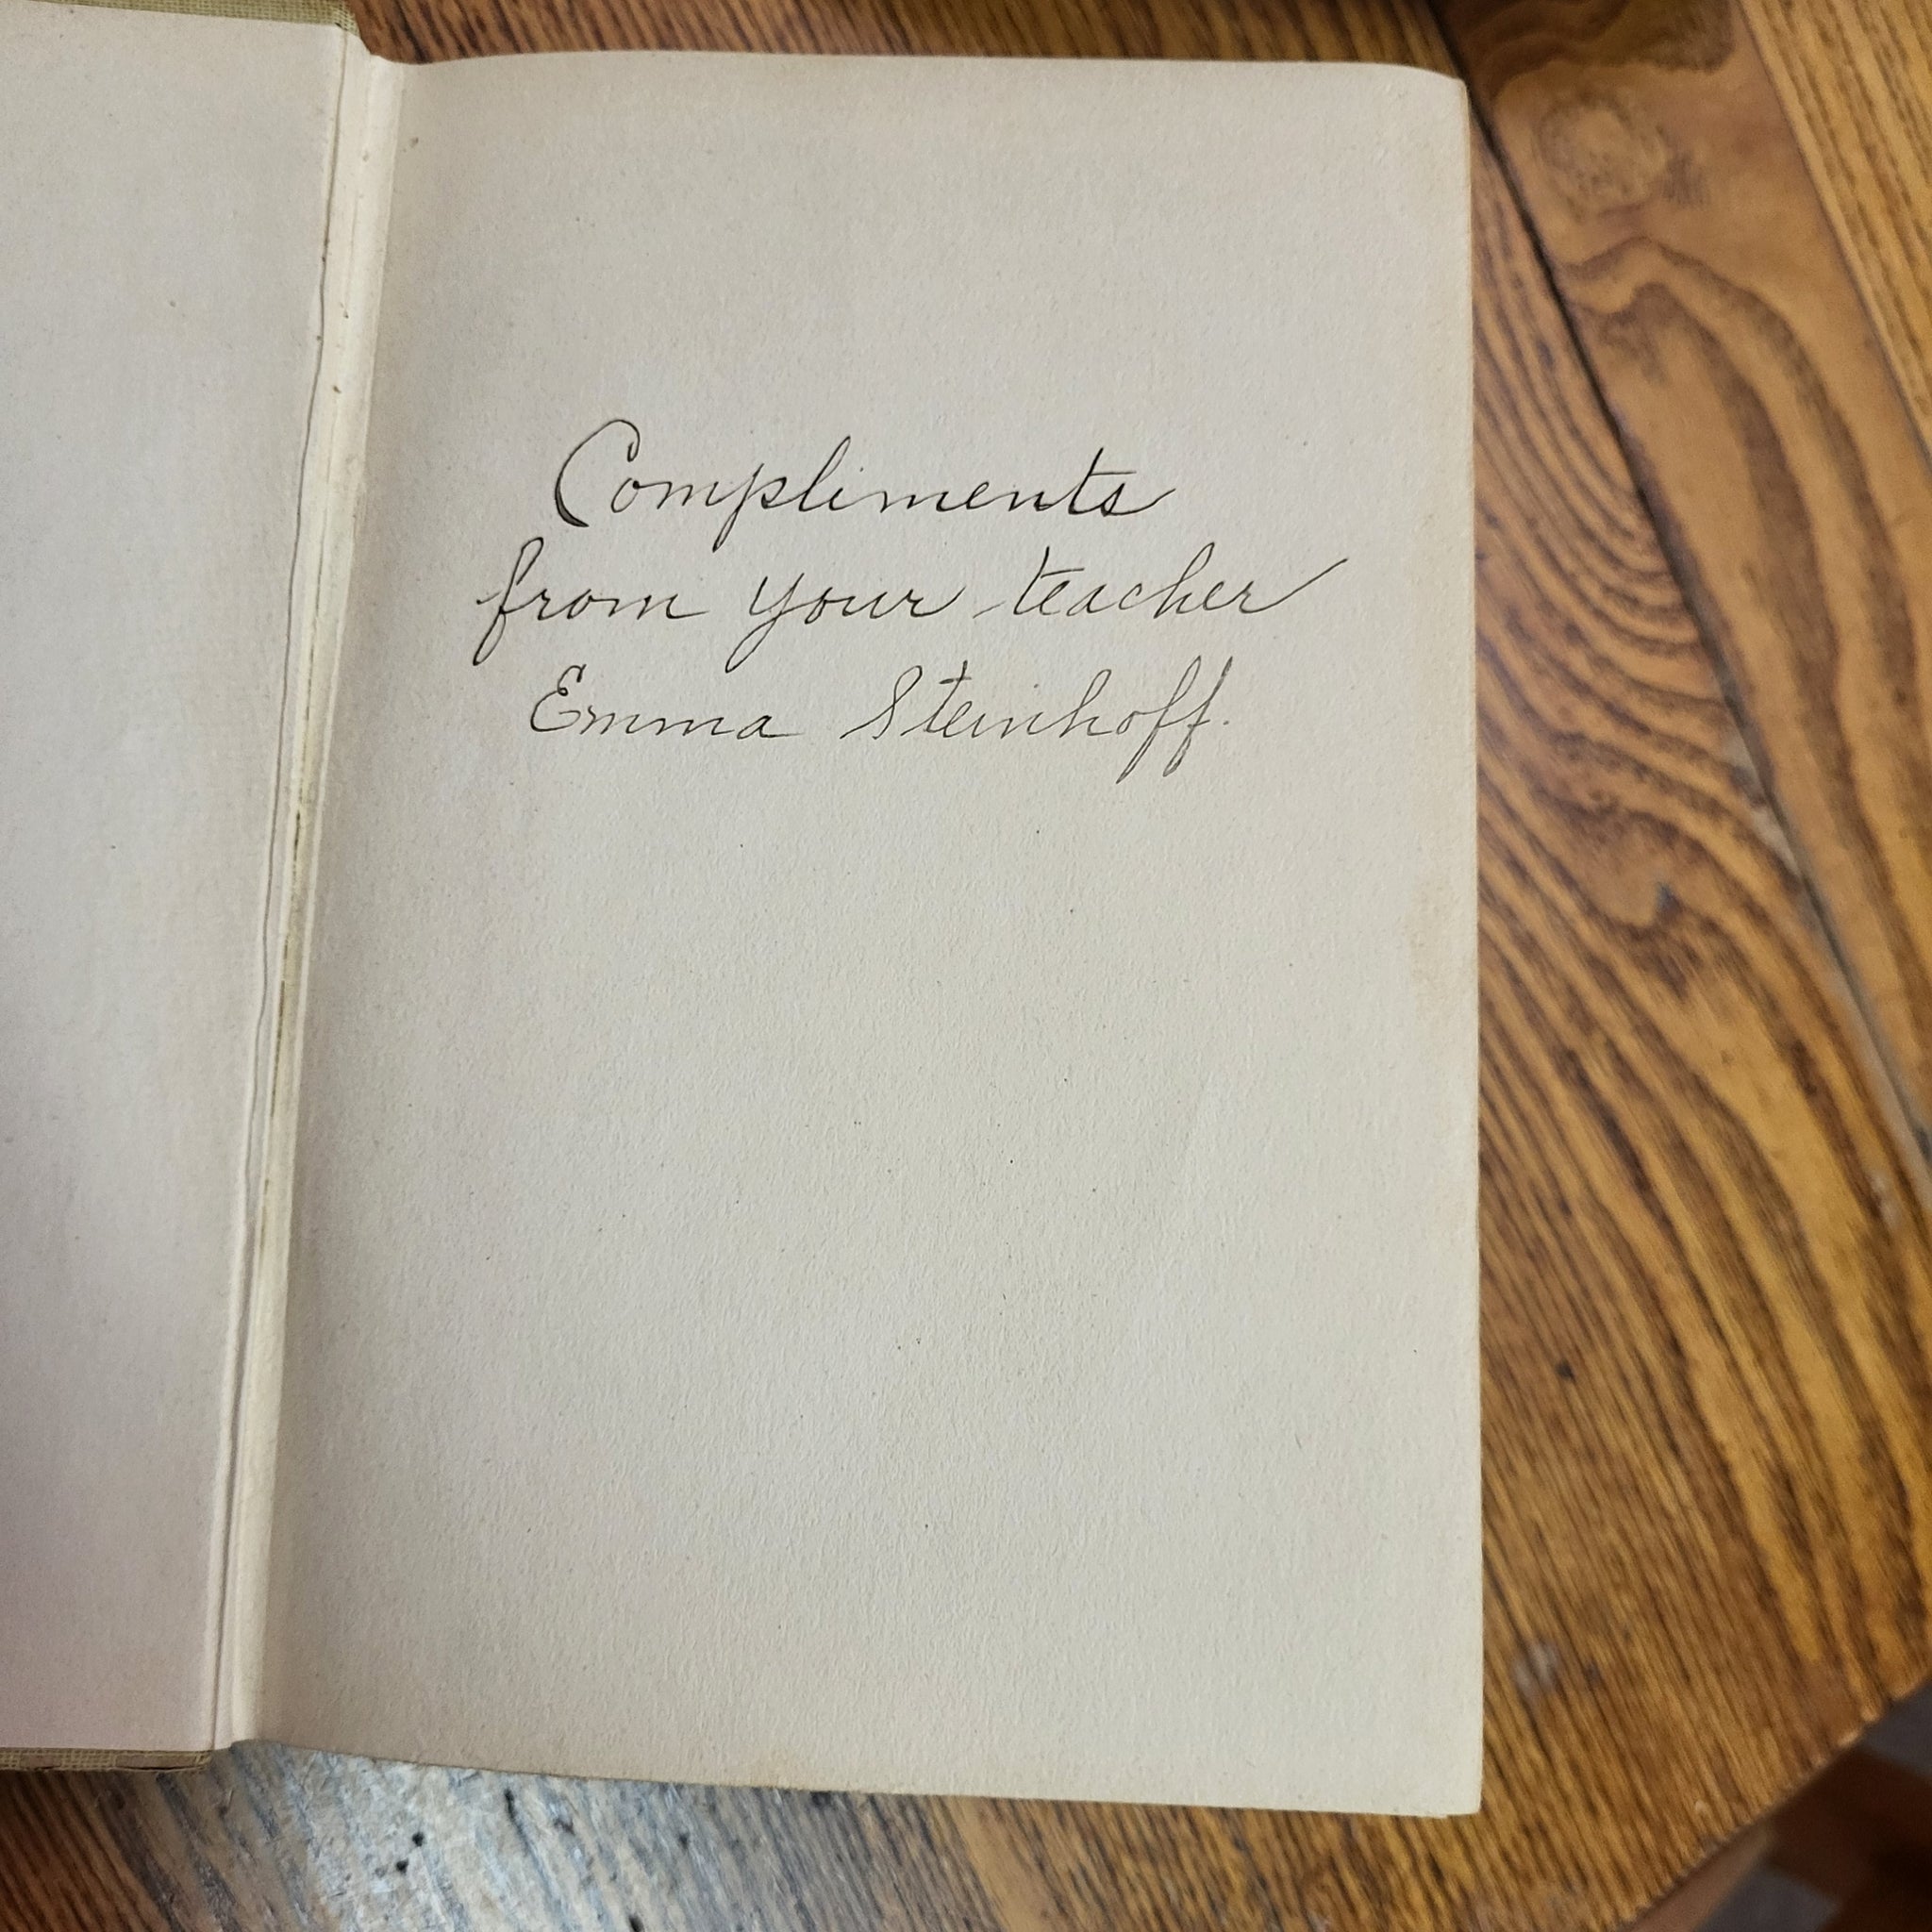 Compliments
from your teacher
Emma Steinhoff.